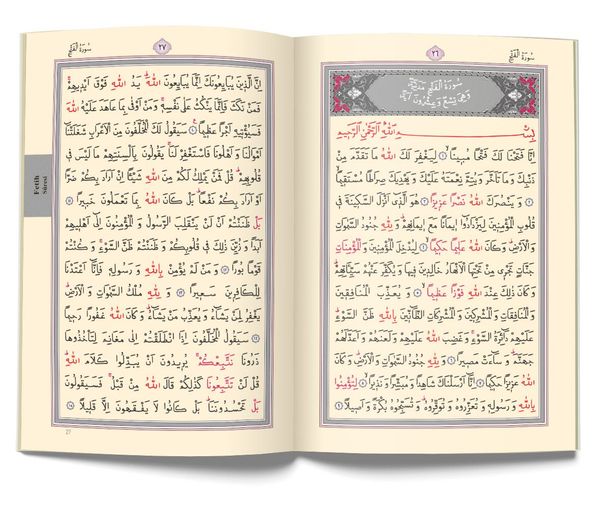 سُورَةُ الْفَتْحِ
٢٦
سُورَةُ الْفَتْحِ مَدَنِيَّةٌ
وَهِيَ تِسْعٌ وَعِشْرُونَ آيَةً
بِسْمِ اللّٰهِ الرَّحْمٰنِ الرَّحِيمِ
اِنَّا فَتَحْنَا لَكَ فَتْحًا مُبِينًا ﴿١﴾ لِيَغْفِرَ لَكَ اللّٰهُ مَا تَقَدَّمَ مِنْ
ذَنْبِكَ وَمَا تَاَخَّرَ وَيُتِمَّ نِعْمَتَهُ عَلَيْكَ وَيَهْدِيَكَ صِرَاطًا مُسْتَقِيمًا
﴿٢﴾ وَيَنْصُرَكَ اللّٰهُ نَصْرًا عَزِيزًا ﴿٣﴾ هُوَ الَّذِي اَنْزَلَ السَّكِينَةَ فِي
قُلُوبِ الْمُؤْمِنِينَ لِيَزْدَادُوا اِيمَانًا مَعَ اِيمَانِهِمْ وَلِلّٰهِ جُنُودُ السَّمٰوَاتِ
وَالْاَرْضِ وَكَانَ اللّٰهُ عَلِيمًا حَكِيمًا ﴿٤﴾ لِيُدْخِلَ الْمُؤْمِنِينَ وَالْمُؤْمِنَاتِ
جَنَّاتٍ تَجْرِي مِنْ تَحْتِهَا الْاَنْهَارُ خَالِدِينَ فِيهَا وَيُكَفِّرَ عَنْهُمْ سَيِّـَٔاتِهِمْ
وَكَانَ ذٰلِكَ عِنْدَ اللّٰهِ فَوْزًا عَظِيمًا ﴿٥﴾ وَيُعَذِّبَ الْمُنَافِقِينَ
وَالْمُنَافِقَاتِ وَالْمُشْرِكِينَ وَالْمُشْرِكَاتِ الظَّانِّينَ بِاللّٰهِ ظَنَّ السَّوْءِ
عَلَيْهِمْ دَائِرَةُ السَّوْءِ وَغَضِبَ اللّٰهُ عَلَيْهِمْ وَلَعَنَهُمْ وَاَعَدَّ لَهُمْ
جَهَنَّمَ وَسَاءَتْ مَصِيرًا ﴿٦﴾ وَلِلّٰهِ جُنُودُ السَّمٰوَاتِ وَالْاَرْضِ وَكَانَ
اللّٰهُ عَزِيزًا حَكِيمًا ﴿٧﴾ اِنَّا اَرْسَلْنَاكَ شَاهِدًا وَمُبَشِّرًا وَنَذِيرًا ﴿٨﴾ لِتُؤْمِنُوا
بِاللّٰهِ وَرَسُولِهِ وَتُعَزِّرُوهُ وَتُوَقِّرُوهُ وَتُسَبِّحُوهُ بُكْرَةً وَاَصِيلًا ﴿٩﴾
٢٧
سُورَةُ الْفَتْحِ
اِنَّ الَّذِينَ يُبَايِعُونَكَ اِنَّمَا يُبَايِعُونَ اللّٰهَ يَدُ اللّٰهِ فَوْقَ اَيْدِيهِمْ
فَمَنْ نَكَثَ فَاِنَّمَا يَنْكُثُ عَلٰى نَفْسِهِ وَمَنْ اَوْفٰى بِمَا عَاهَدَ عَلَيْهُ اللّٰهَ
فَسَيُؤْتِيهِ اَجْرًا عَظِيمًا ﴿١٠﴾ سَيَقُولُ لَكَ الْمُخَلَّفُونَ مِنَ الْاَعْرَابِ شَغَلَتْنَا
اَمْوَالُنَا وَاَهْلُونَا فَاسْتَغْفِرْ لَنَا يَقُولُونَ بِاَلْسِنَتِهِمْ مَا لَيْسَ فِي
قُلُوبِهِمْ قُلْ فَمَنْ يَمْلِكُ لَكُمْ مِنَ اللّٰهِ شَيْـًٔا اِنْ اَرَادَ بِكُمْ ضَرًّا
اَوْ اَرَادَ بِكُمْ نَفْعًا بَلْ كَانَ اللّٰهُ بِمَا تَعْمَلُونَ خَبِيرًا ﴿١١﴾
بَلْ ظَنَنْتُمْ اَنْ لَنْ يَنْقَلِبَ الرَّسُولُ وَالْمُؤْمِنُونَ اِلٰى اَهْلِيهِمْ
اَبَدًا وَزُيِّنَ ذٰلِكَ فِي قُلُوبِكُمْ وَظَنَنْتُمْ ظَنَّ السَّوْءِ وَكُنْتُمْ
قَوْمًا بُورًا ﴿١٢﴾ وَمَنْ لَمْ يُؤْمِنْ بِاللّٰهِ وَرَسُولِهِ فَاِنَّا اَعْتَدْنَا
لِلْكَافِرِينَ سَعِيرًا ﴿١٣﴾ وَلِلّٰهِ مُلْكُ السَّمٰوَاتِ وَالْاَرْضِ
يَغْفِرُ لِمَنْ يَشَاءُ وَيُعَذِّبُ مَنْ يَشَاءُ وَكَانَ اللّٰهُ غَفُورًا رَحِيمًا
﴿١٤﴾ سَيَقُولُ الْمُخَلَّفُونَ اِذَا انْطَلَقْتُمْ اِلٰى مَغَانِمَ لِتَاْخُذُوهَا
ذَرُونَا نَتَّبِعْكُمْ يُرِيدُونَ اَنْ يُبَدِّلُوا كَلَامَ اللّٰهِ
قُلْ لَنْ تَتَّبِعُونَا كَذٰلِكُمْ قَالَ اللّٰهُ مِنْ قَبْلُ فَسَيَقُولُونَ
بَلْ تَحْسُدُونَنَا بَلْ كَانُوا لَا يَفْقَهُونَ اِلَّا قَلِيلًا ﴿١٥﴾
Fetih
Sûresi
27